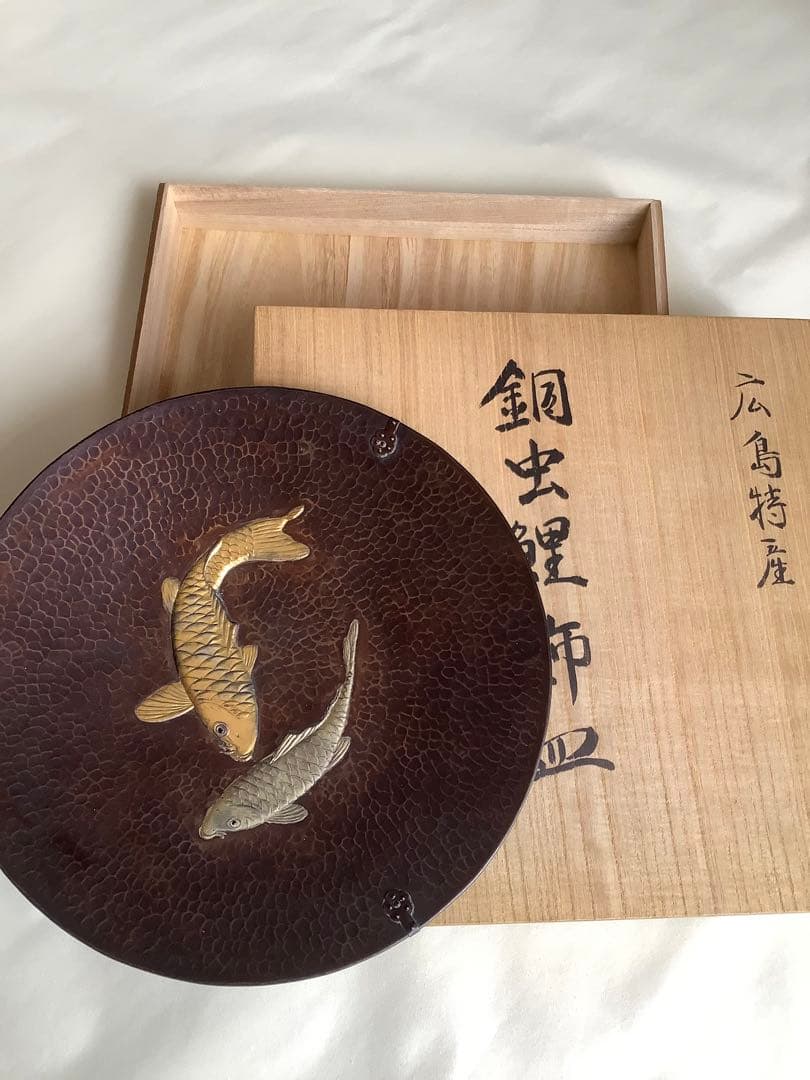 広島特産
銅虫鯉飾皿